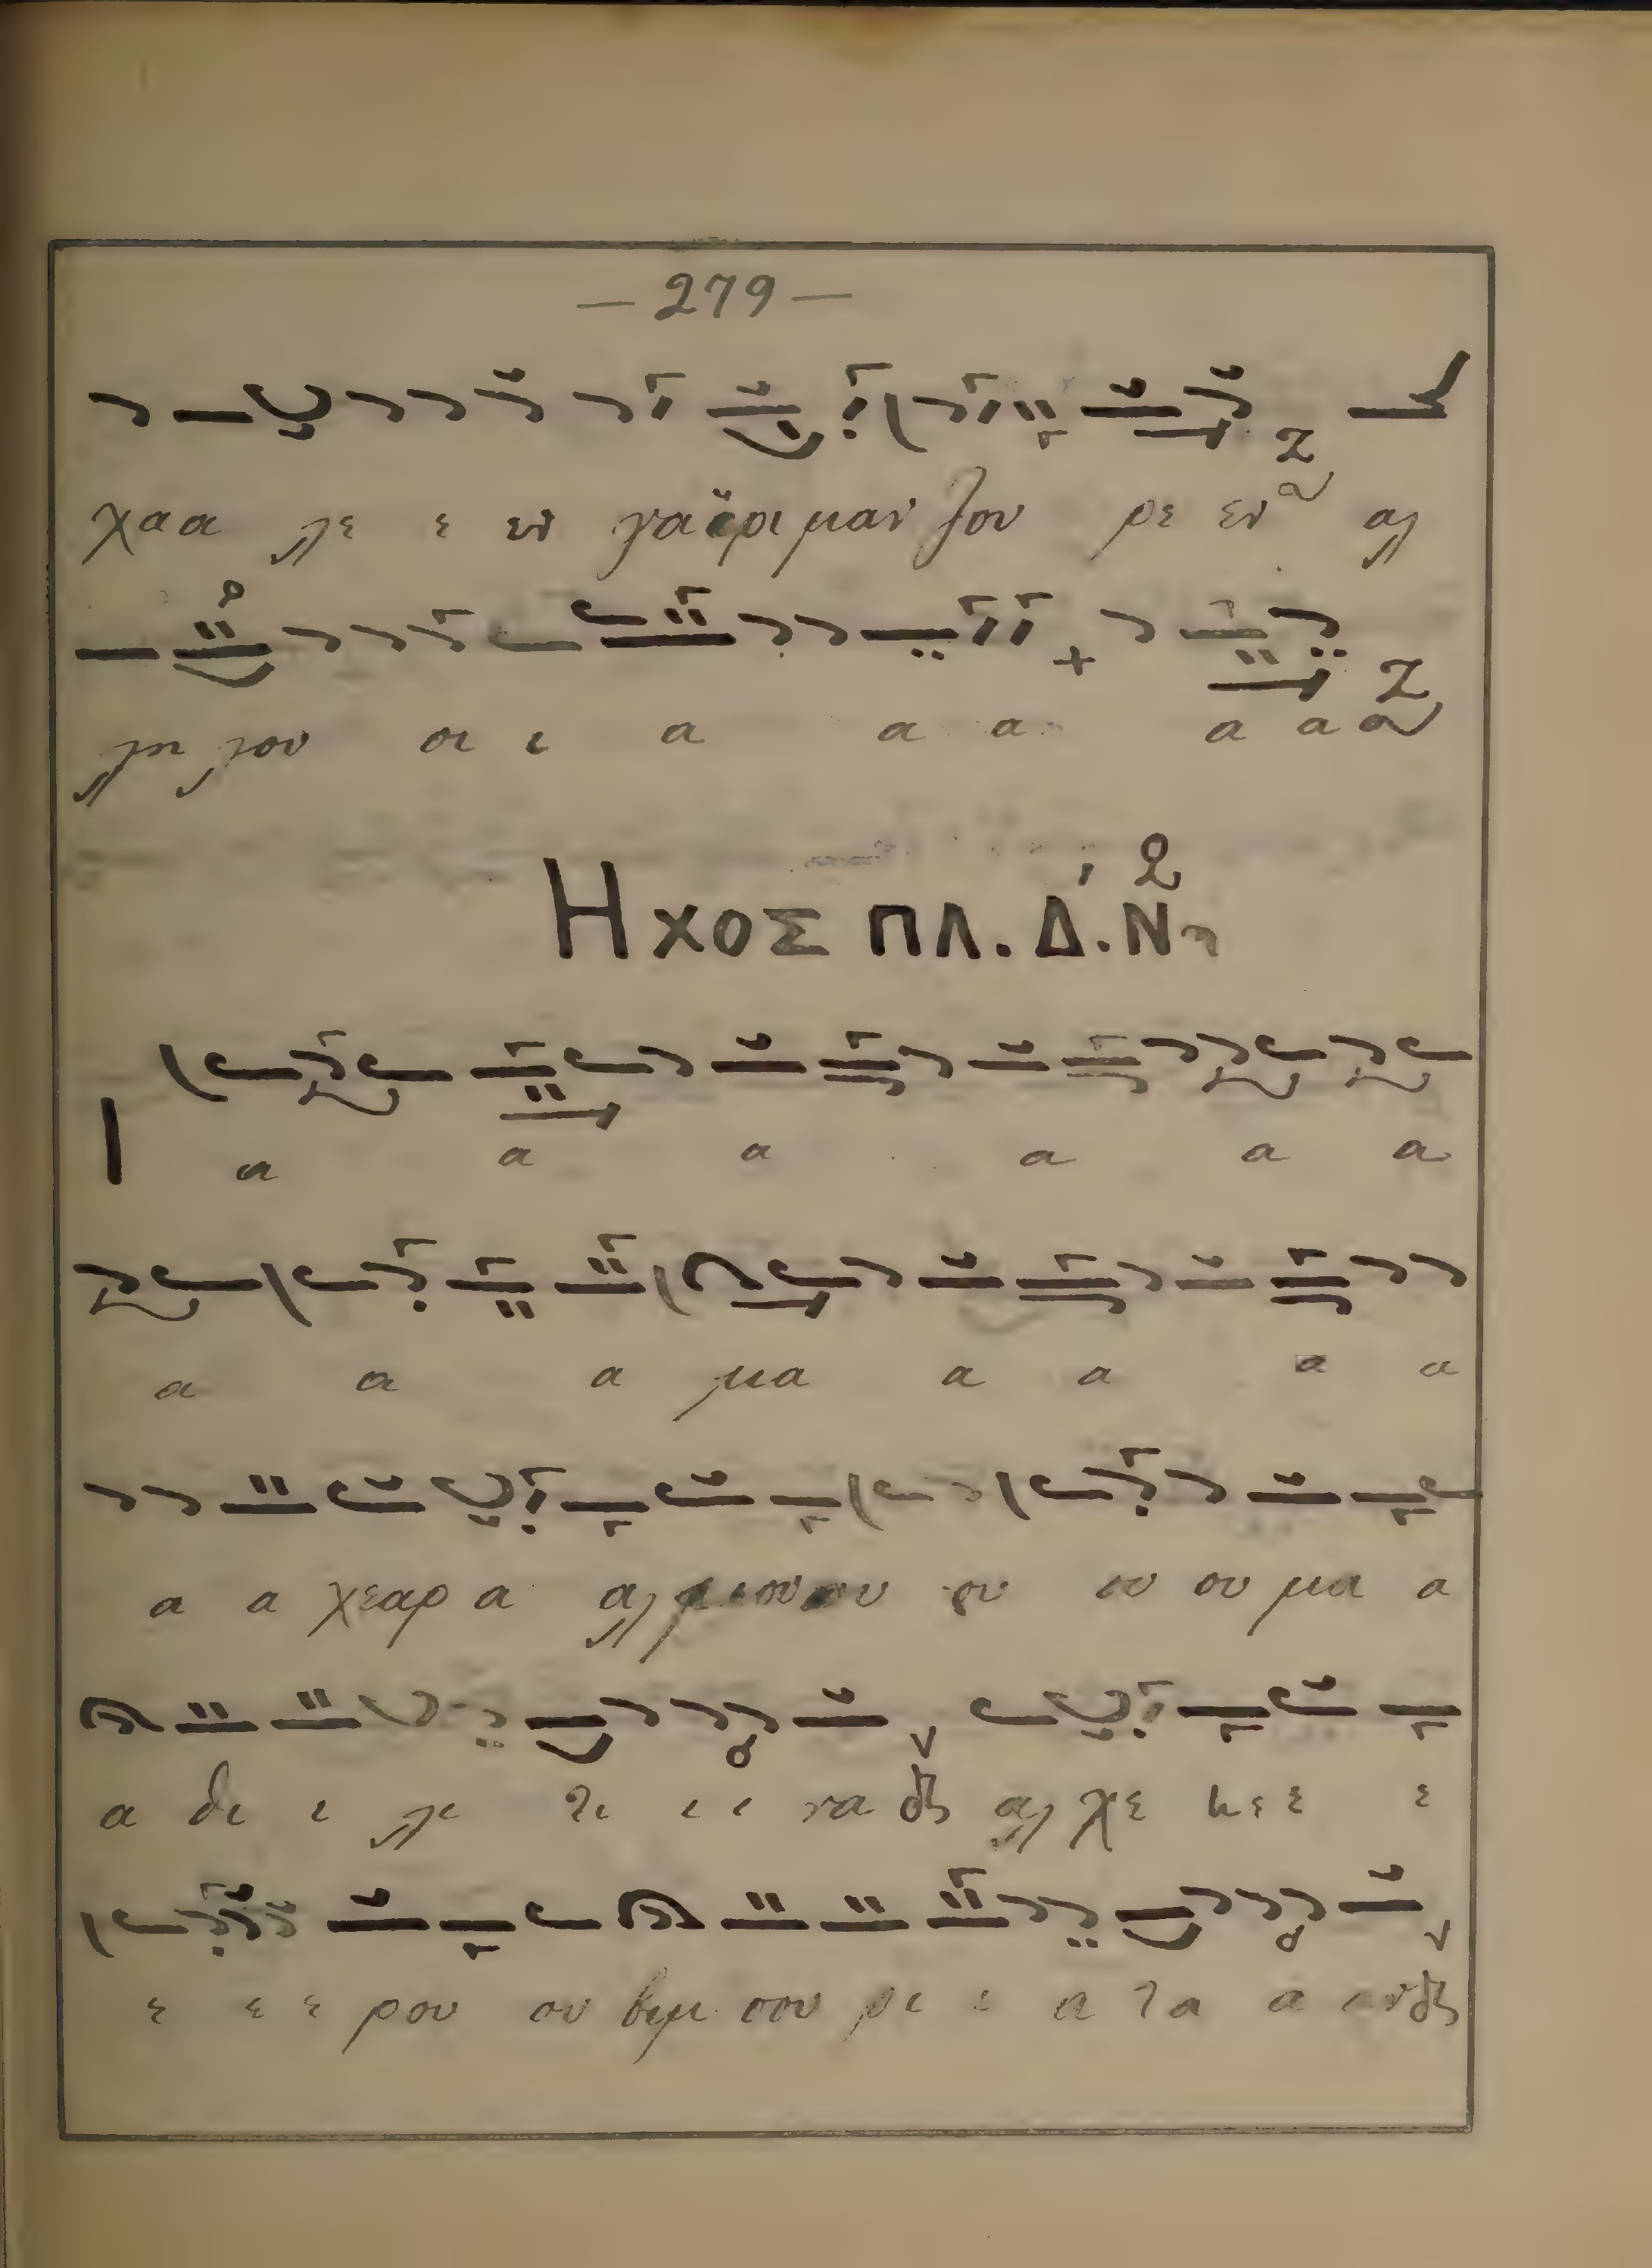 — 279 —
χαα λε ε εν γαϊρι μαν ζου ρε εν αλ
λη λου οι ι α α α α α
Ηχος πλ. Δ'. Νη
α α α α α α
α α α μα α α α α
α α χεαρ α αλ ου ου ου μα α
α δι ι λι τι ι ι να αλ χε κε ε ε
ε ε ε ρου ου βιμ σου ρι ι α τα α